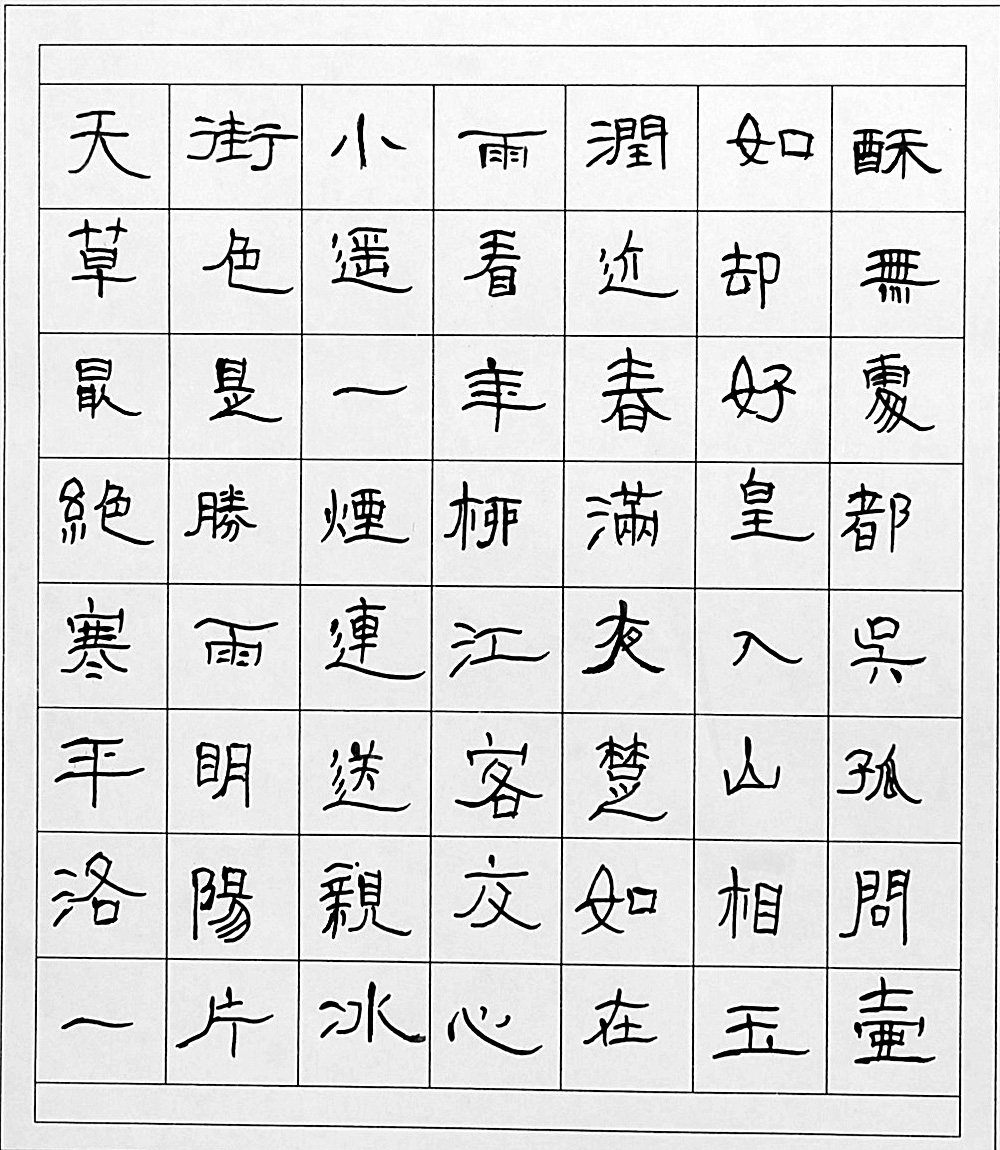 天街小雨潤如酥
草色遥看近却無
最是一年春好處
絕色勝煙柳滿皇都
寒雨連江夜入吳
平明送客楚山孤
洛陽親友如相問
一片冰心在玉壺